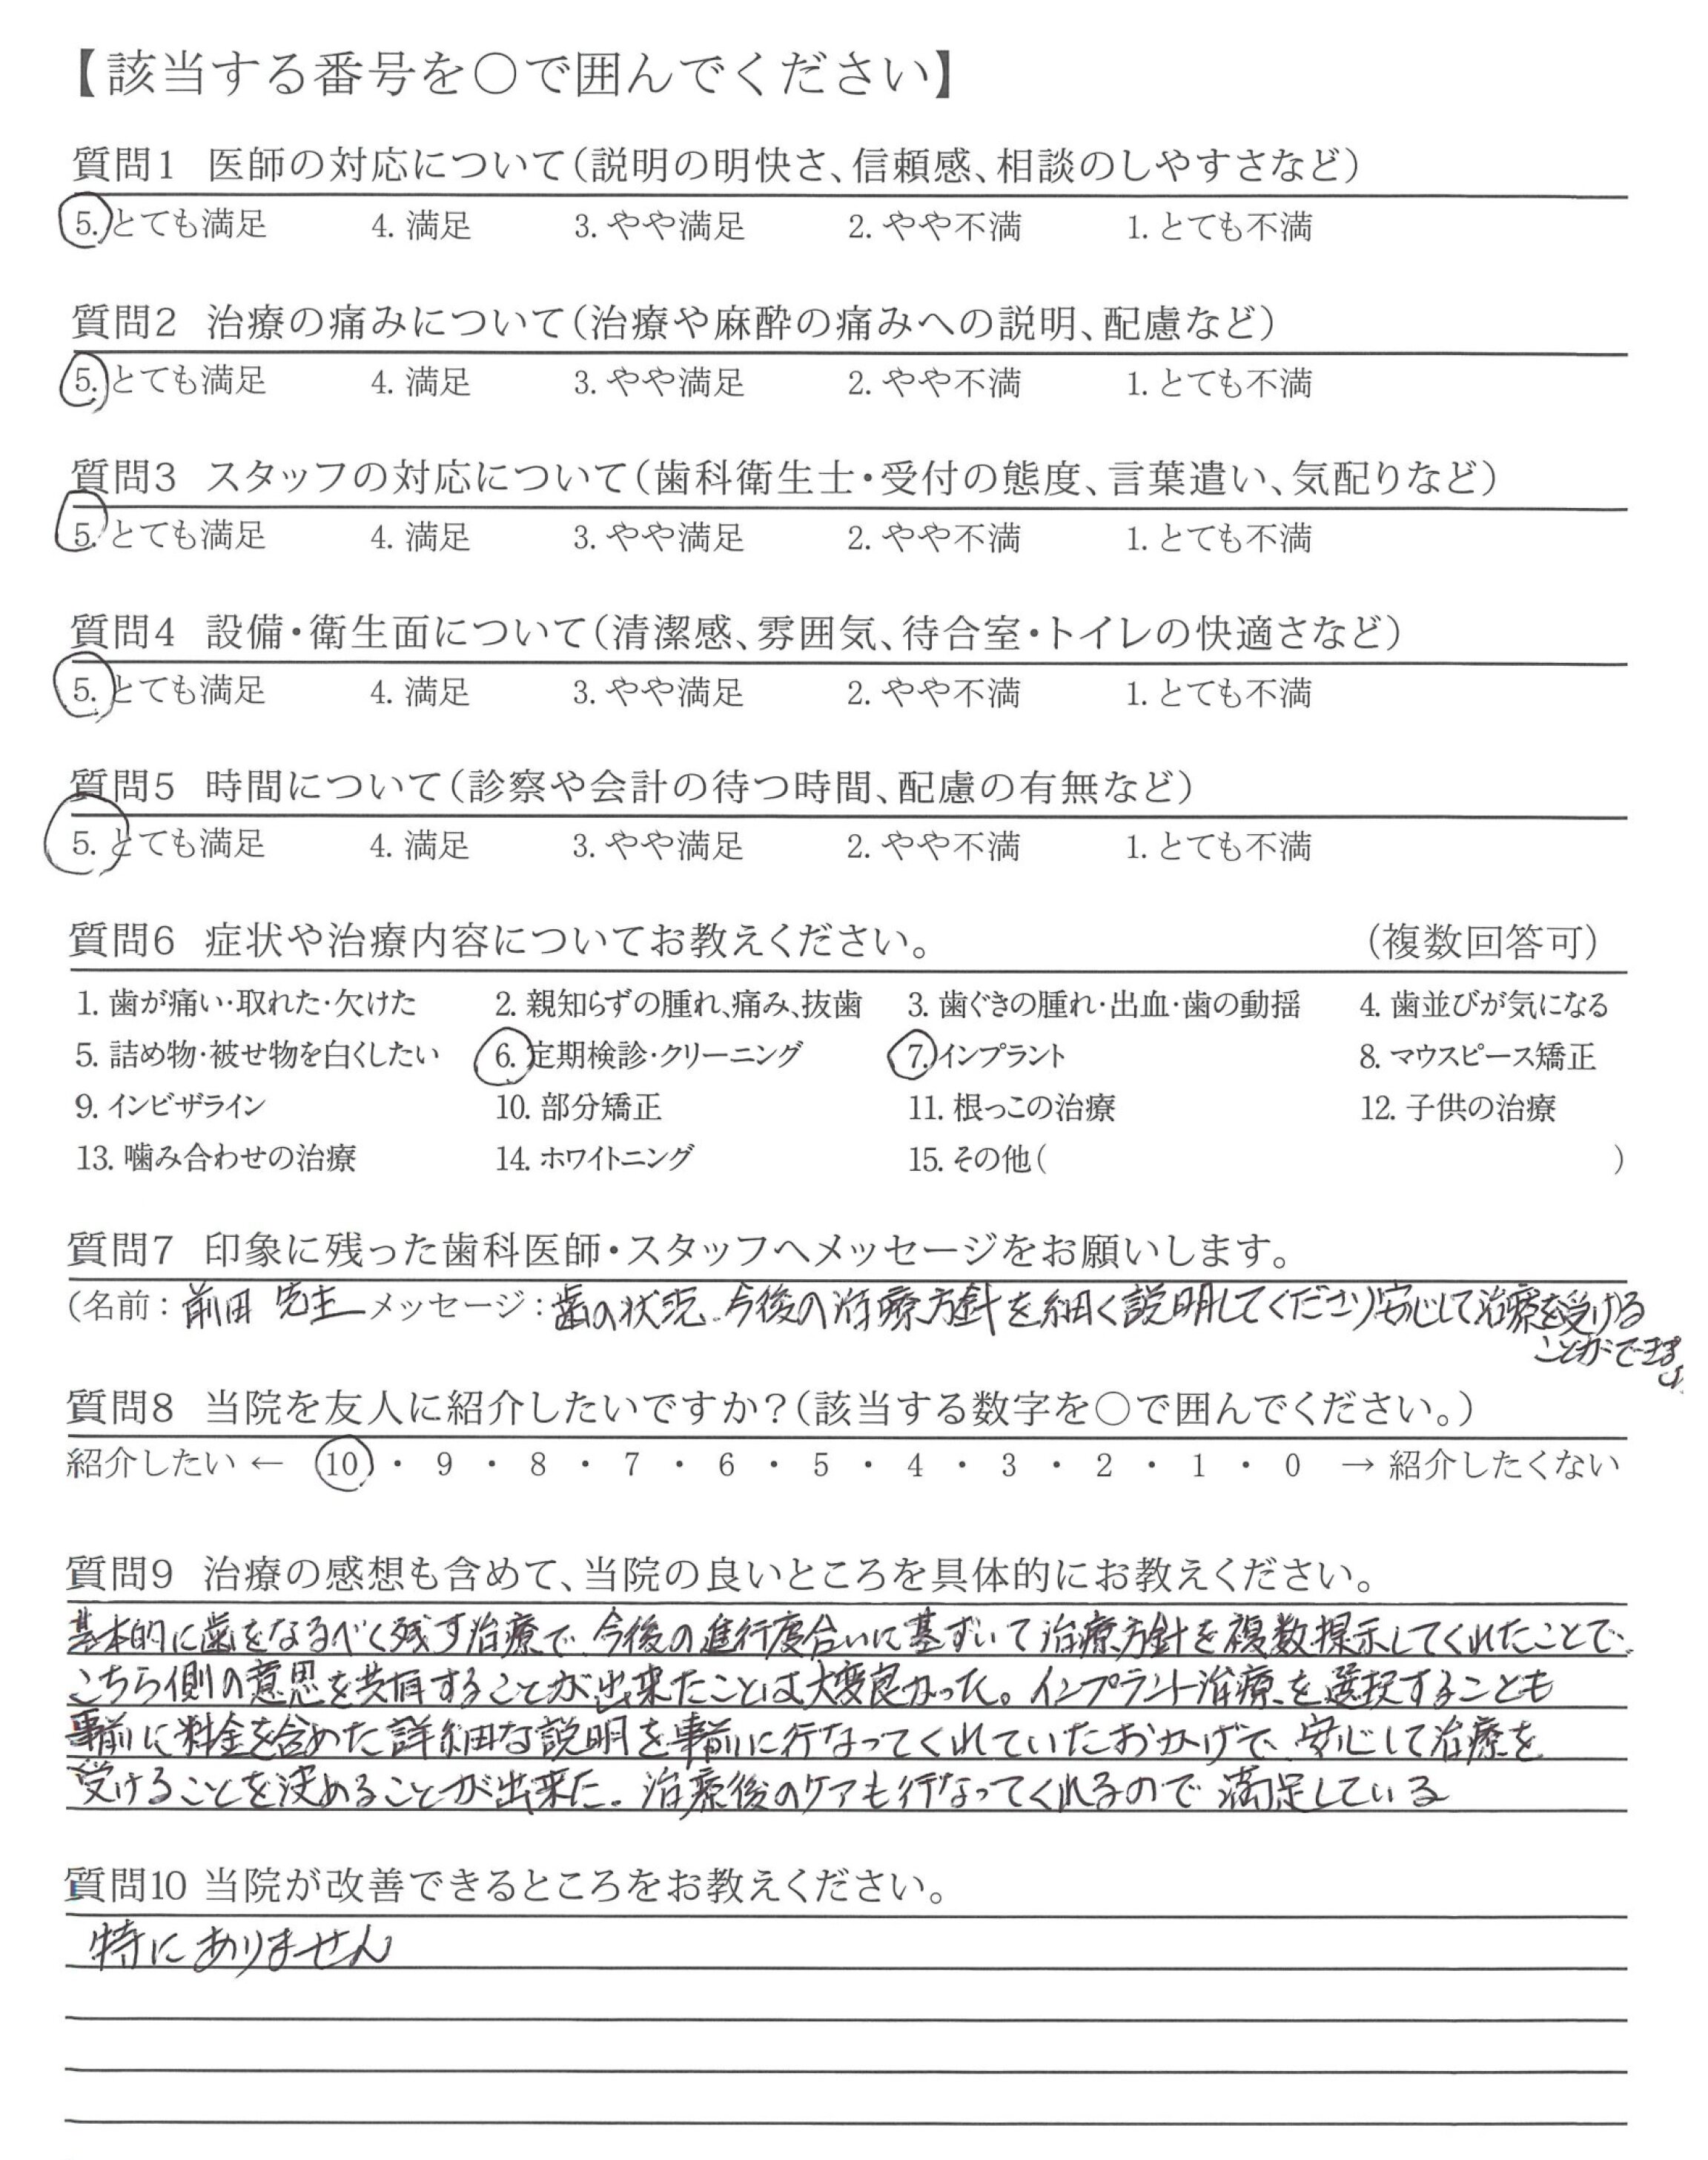 【該当する番号を○で囲んでください】
質問1 医師の対応について（説明の明快さ、信頼感、相談のしやすさなど）
5. とても満足 4. 満足 3. やや満足 2. やや不満 1. とても不満
質問2 治療の痛みについて（治療や麻酔の痛みへの説明、配慮など）
5. とても満足 4. 満足 3. やや満足 2. やや不満 1. とても不満
質問3 スタッフの対応について（歯科衛生士・受付の態度、言葉遣い、気配りなど）
5. とても満足 4. 満足 3. やや満足 2. やや不満 1. とても不満
質問4 設備・衛生面について（清潔感、雰囲気、待合室・トイレの快適さなど）
5. とても満足 4. 満足 3. やや満足 2. やや不満 1. とても不満
質問5 時間について（診察や会計の待つ時間、配慮の有無など）
5. とても満足 4. 満足 3. やや満足 2. やや不満 1. とても不満
質問6 症状や治療内容についてお教えください。 （複数回答可）
1. 歯が痛い・取れた・欠けた 2. 親知らずの腫れ、痛み、抜歯 3. 歯ぐきの腫れ・出血・歯の動揺 4. 歯並びが気になる
5. 詰め物・被せ物を白くしたい 6. 定期検診・クリーニング 7. インプラント 8. マウスピース矯正
9. インビザライン 10. 部分矯正 11. 根っこの治療 12. 子供の治療
13. 噛み合わせの治療 14. ホワイトニング 15. その他（ ）
質問7 印象に残った歯科医師・スタッフへメッセージをお願いします。
（名前：前田 先生 メッセージ：歯の状況、今後の治療方針を細く説明してくださり安心して治療を受ける
ことができま
した
質問8 当院を友人に紹介したいですか？（該当する数字を○で囲んでください。）
紹介したい ← 10 ・ 9 ・ 8 ・ 7 ・ 6 ・ 5 ・ 4 ・ 3 ・ 2 ・ 1 ・ 0 → 紹介したくない
質問9 治療の感想も含めて、当院の良いところを具体的にお教えください。
基本的に歯をなるべく残す治療で、今後の進行度合いに基ずいて治療方針を複数提示してくれたことで、
こちら側の意思を共有することが出来たことは大変良かった。インプラント治療を選択することも
事前に料金を含めた詳細な説明を事前に行なってくれていたおかげで、安心して治療を
受けることを決めることが出来た。治療後のケアも行なってくれるので満足している
質問10 当院が改善できるところをお教えください。
特にありません